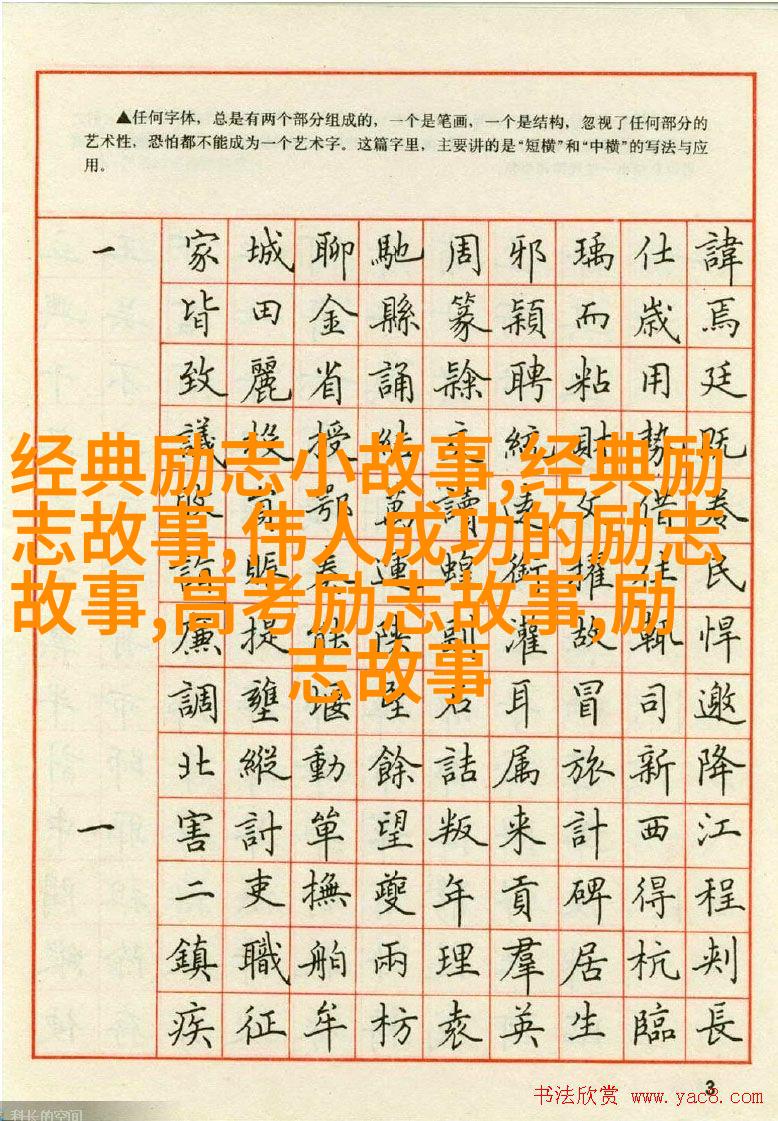 ▲任何字体，总是有两个部分组成的，一个是笔画，一个是结构，忽视了任何部分的
艺术性，恐怕都不能成为一个艺术字。这篇字里，主要讲的是“短横”和“中横”的写法与应
用。
一 家 城 聊 馳 周 邪 瑀 仕 諱
皆 田 金 縣 篆 穎 而 歲 焉
致 麗 省 誦 隸 聘 粘 用 廷
議 投 授 統 財 勢 既
经典励志小故事,经典励
志故事,伟人成功的励志
故事,高考励志故事,励
志故事
鄂 萬 讀 文 借 卷
連 蝗 衔 擢 往 民
廉 捉 灌 故 輒 悍
調 壅 堰 右 耳 冒 司 邀
北 縱 動 餘 詰 属 旅 新 降
一 害 討 單 望 叛 来 計 西 江
二 吏 撫 夔 年 貢 碑 得 程
鎮 職 船 兩 理 羣 居 杭 刺
疾 征 牟 枋 袁 英 生 臨 長
3
书法欣赏 www.yac8.com
科长的空间